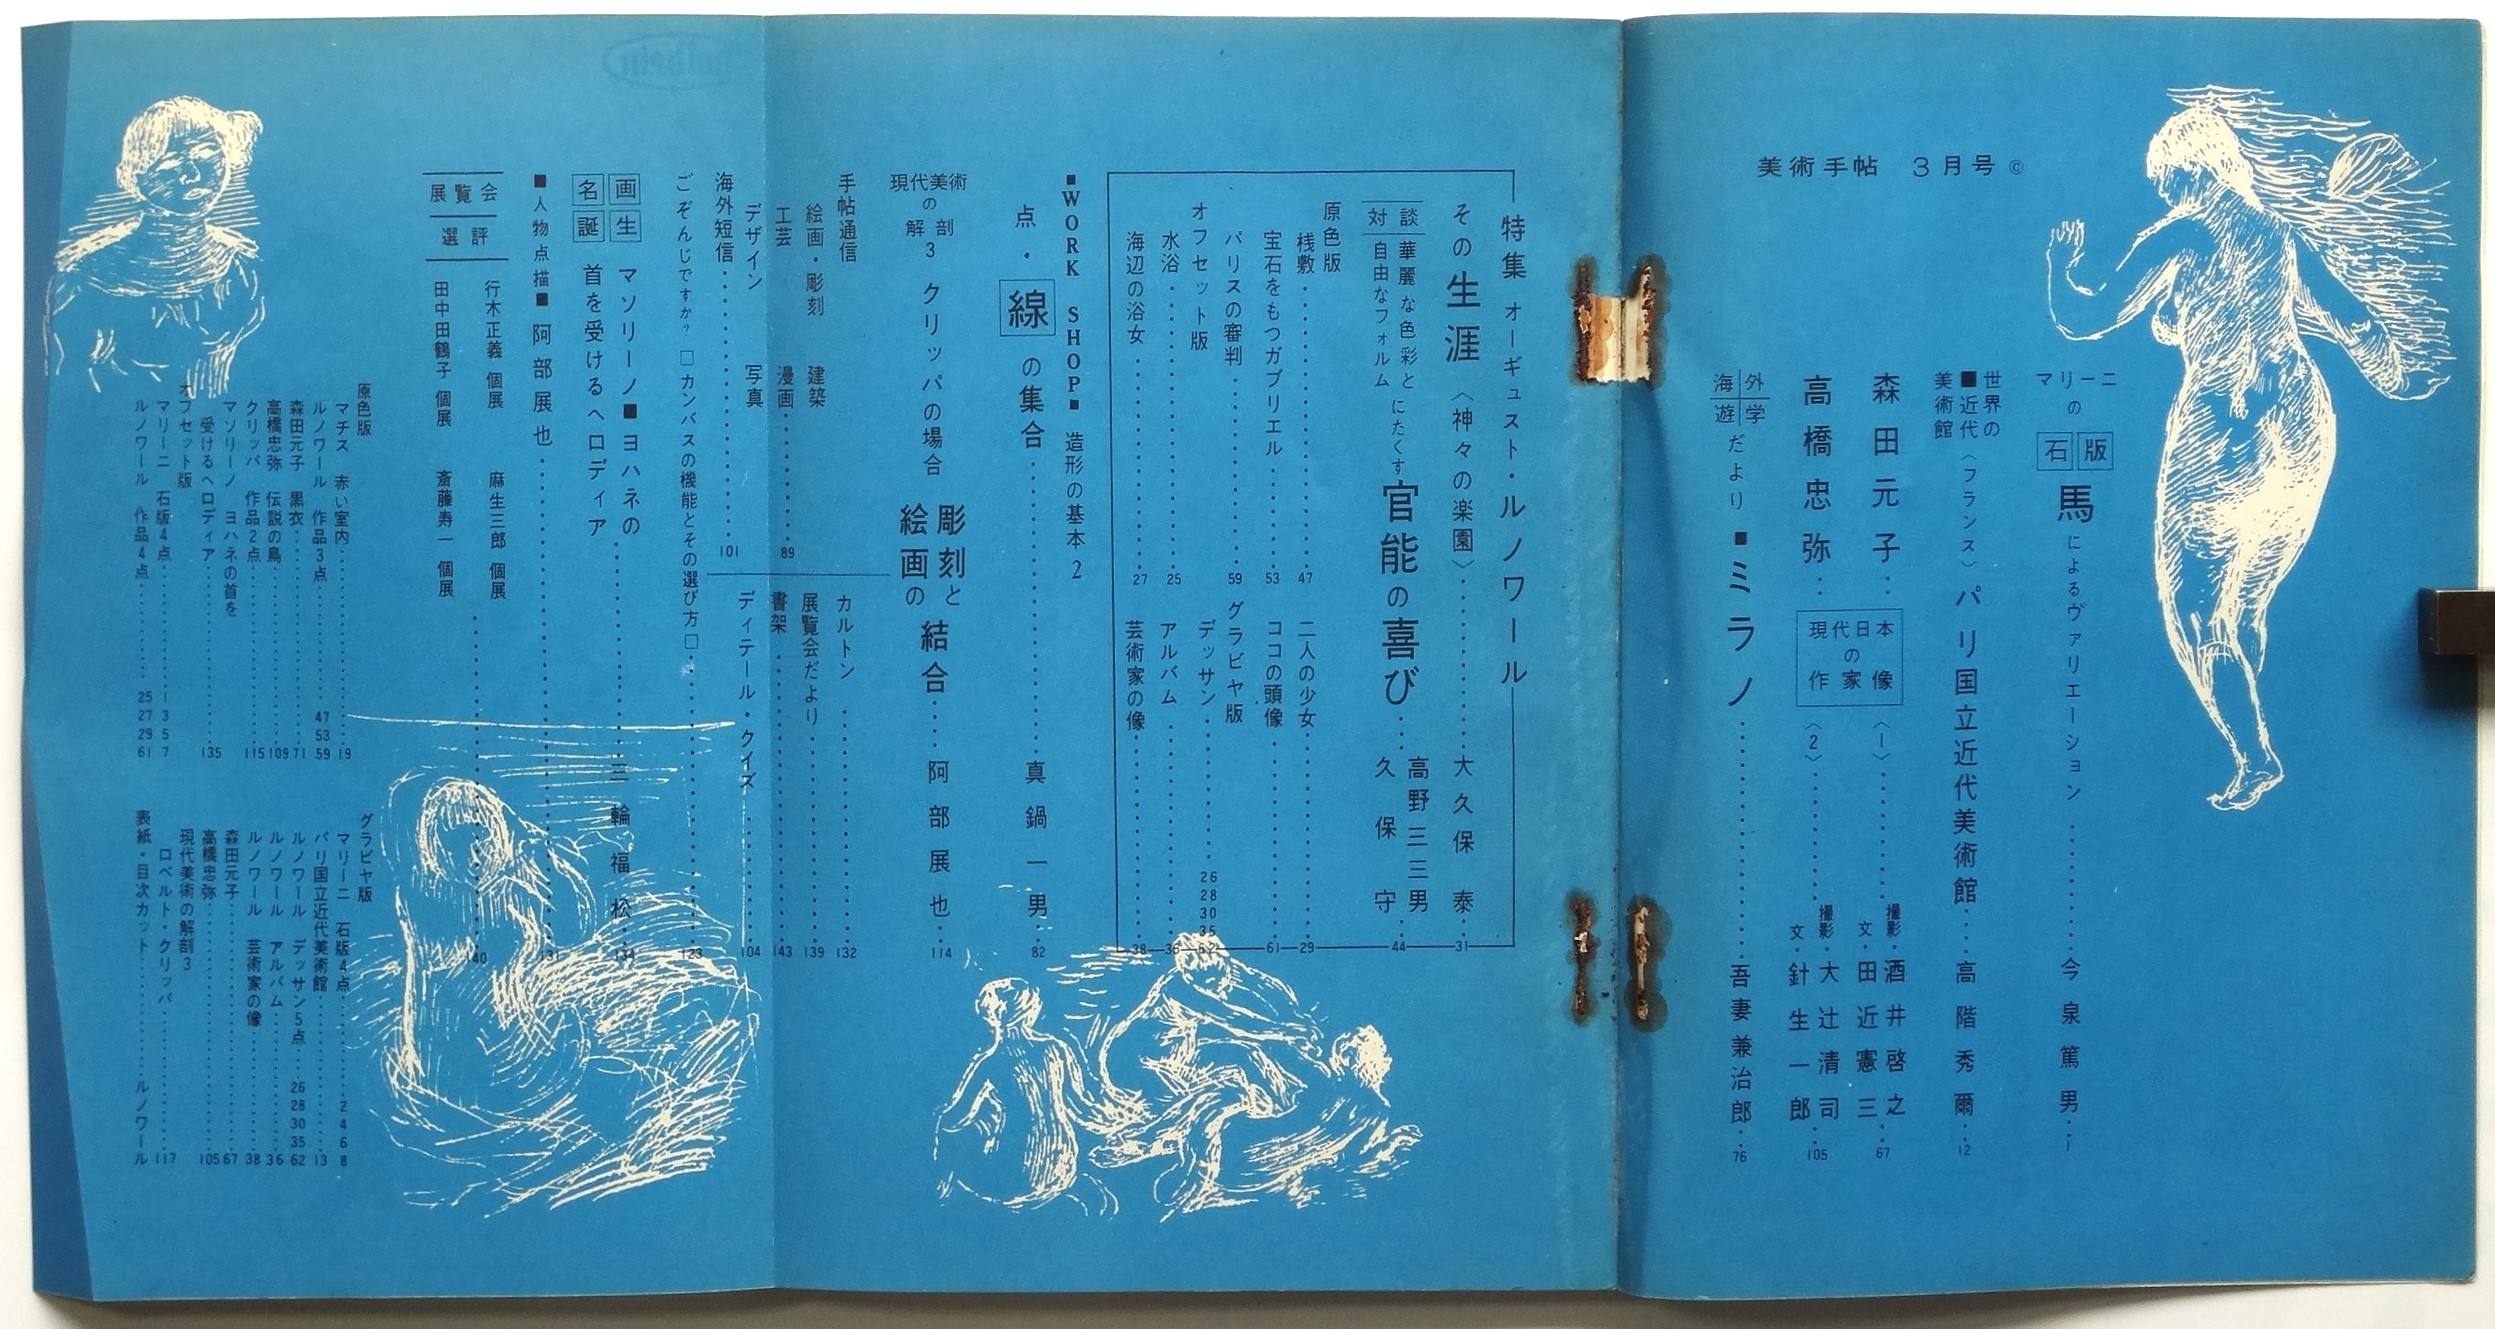 美術手帖 3月号 ©
マリーニの石版
馬によるヴァリエーション……今泉篤男…1
世界の
■近代〈フランス〉パリ国立近代美術館……高階秀爾…12
美術館
現代日本の作家像
森田元子…〈1〉……撮影・酒井啓之
文・田近憲三…67
高橋忠弥…〈2〉……撮影・大辻清司
文・針生一郎…105
海外遊学だより■ミラノ……吾妻兼治郎…76
特集 オーギュスト・ルノワール
その生涯〈神々の楽園〉……大久保泰…31
対談 華麗な色彩と
自由なフォルムにたくす官能の喜び……高野三三男
久保守…44
原色版
桟敷……47
宝石をもつガブリエル……53
パリスの審判……59
オフセット版
水浴……25
海辺の浴女……27
二人の少女……29
ココの頭像……61
グラビヤ版
デッサン……26 28 30 35 62
アルバム……36
芸術家の像……38
■WORK SHOP■ 造形の基本2
点・線の集合……真鍋一男…82
現代美術の解剖3 クリッパの場合 彫刻と絵画の結合……阿部展也…114
手帖通信
絵画・彫刻 建築
工芸 漫画……89
デザイン 写真
海外短信……101
カルトン……132
展覧会だより……139
書架……143
ディテール・クイズ……104
ごぞんじですか? □カンバスの機能とその選び方□……123
名画誕生 マソリーノ■ヨハネの
首を受けるヘロディア……三輪福松…134
■人物点描■ 阿部展也……131
展覧会選評
行木正義 個展 麻生三郎 個展
田中田鶴子 個展 斎藤寿一 個展……140
原色版
マチス 赤い室内……19
ルノワール 作品3点……47 53 59
森田元子 黒衣……71
高橋忠弥 伝説の鳥……109
クリッパ 作品2点……115
マソリーノ ヨハネの首を
受けるヘロディア……135
オフセット版
マリーニ 石版4点……1 3 5 7
ルノワール 作品4点……25 27 29 61
グラビヤ版
マリーニ 石版4点……2 4 6 8
パリ国立近代美術館……13
ルノワール デッサン5点…26 28 30 35 62
ルノワール アルバム……36
ルノワール 芸術家の像……38
森田元子……67
高橋忠弥……105
現代美術の解剖3
ロベルト・クリッパ……117
表紙・目次カット……ルノワール